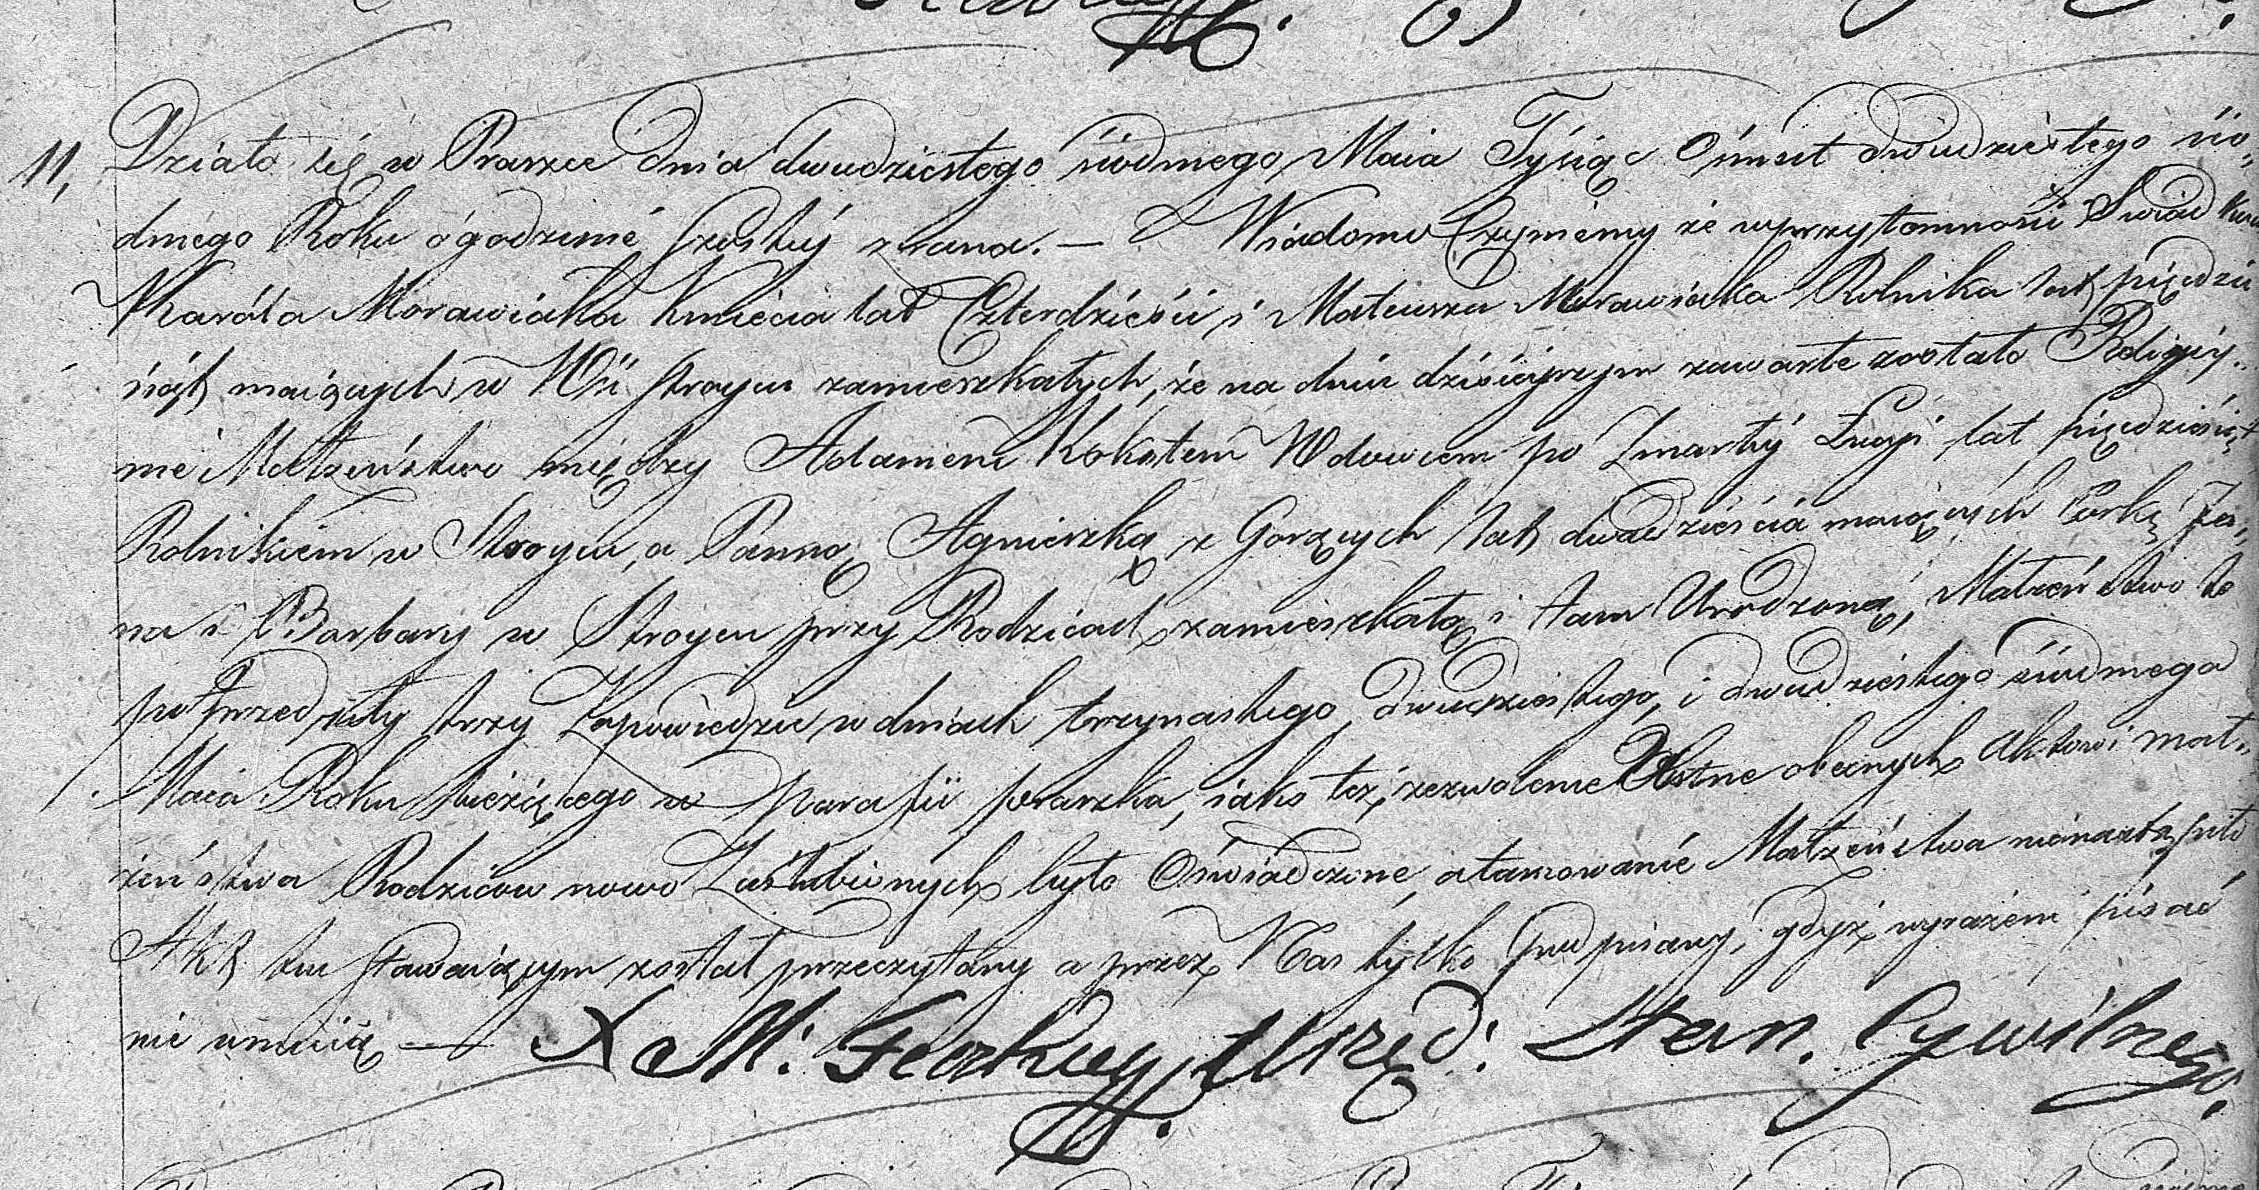 11, Działo się w Praszce dnia dwudziestego siódmego Maia Tysiąc Ośmset dwudziestego sio„
dmego Roku ó godzinie szóstéy z rana. — Wiadomo Czyniemy że w przytomności Swiadków
Karóla Morawiaka Kmiecia lat Czterdzieści i Mateusza Morawiaka Rolnika lat pięćdzie
siąt maiących w Wsi Stroycu zamieszkałych, że na dniu dzisieyszym zawarte zostało Religiy„
né Małżeństwo między Adamem Kokotem Wdowcem po Zmarłéy Łucyi lat pięćdziesiąt
Rolnikiem w Stroycu, a Panną Agnieszką z Gorzących lat dwadzieścia maiących Corką Ja„
na i Barbary w Stroycu przy Rodzicach zamieszkałą i tam Urodzoną, Małżeństwo to
poprzedziły trzy Zapowiedzie w dniach trzynastego, dwudziestego, i dwudziestego siódmego
Maia Roku bieżącego w parafii praszka, iako też zezwolenie Ustne obecnych Aktowi mał„
żeństwa Rodziców nowo Zaślubionych było Oświadczone, a tamowanié Małżeństwa nienastąpiło
Akt ten stawaiącym został przeczytany a przez Nas tylko podpisany, gdyż wyrażeni pisać
nie umieią —— X M: Urzęd: Stan. Cywilnego.